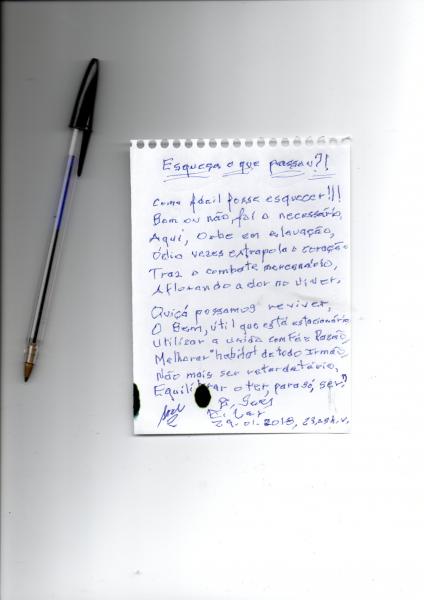 Esqueça o que passou?!
Como fácil fosse esquecer!!!
Bom ou não, foi o necessário,
Aqui, Orbe em elevação,
Ódio vezes extrapola o coração
Traz o combate mercenário,
Aflorando a dor no viver.
Quiçá possamos reviver,
O Bem, útil que está estacionário
Utilizar a unida com Fé e Razão,
Melhorar "habitat" de todo Irmão,
Não mais ser retardatário,
Equilibrar o ter, para só, ser."
29.01.2018,